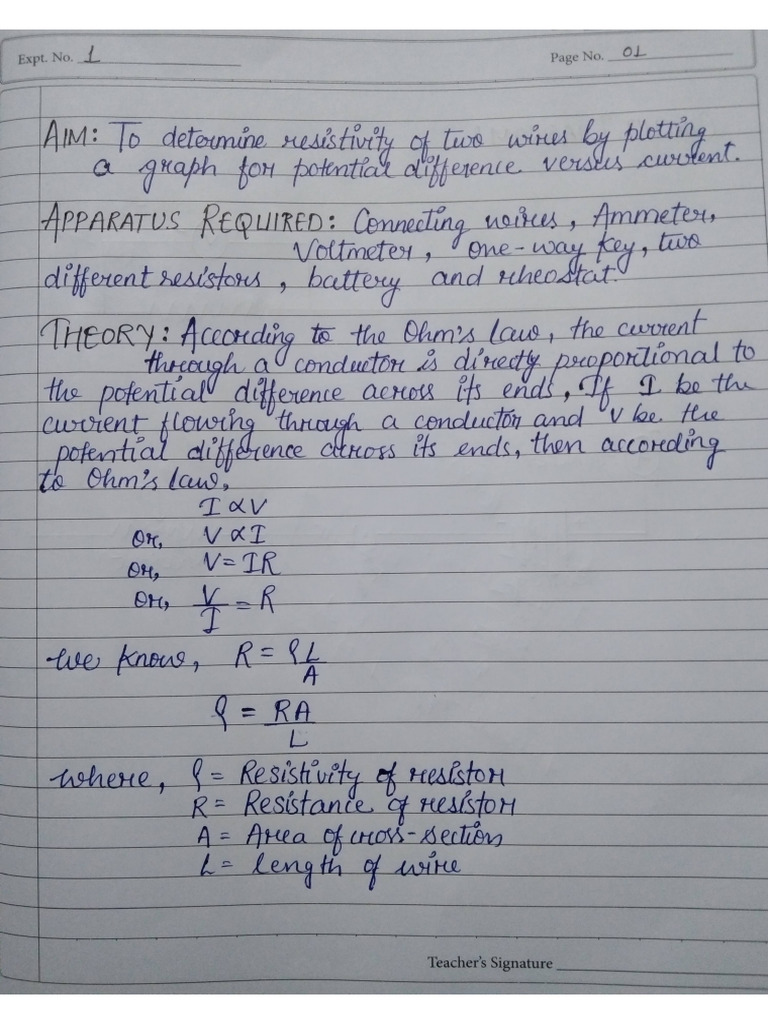 Expt. No. 1
Page No. 01
AIM: To determine resistivity of two wires by plotting
a graph for potential difference versus current.
APPARATUS REQUIRED: Connecting wires, Ammeter,
Voltmeter, one-way key, two
different resistors, battery and rheostat.
THEORY: According to the Ohm's law, the current
through a conductor is directly proportional to
the potential difference across its ends, If I be the
current flowing through a conductor and V be the
potential difference across its ends, then according
to Ohm's law,
I ∝ V
or, V ∝ I
or, V = IR
or, V/I = R
we know, R = ρ L/A
ρ = RA/L
where, ρ = Resistivity of resistor
R = Resistance of resistor
A = Area of cross-section
L = length of wire
Teacher's Signature